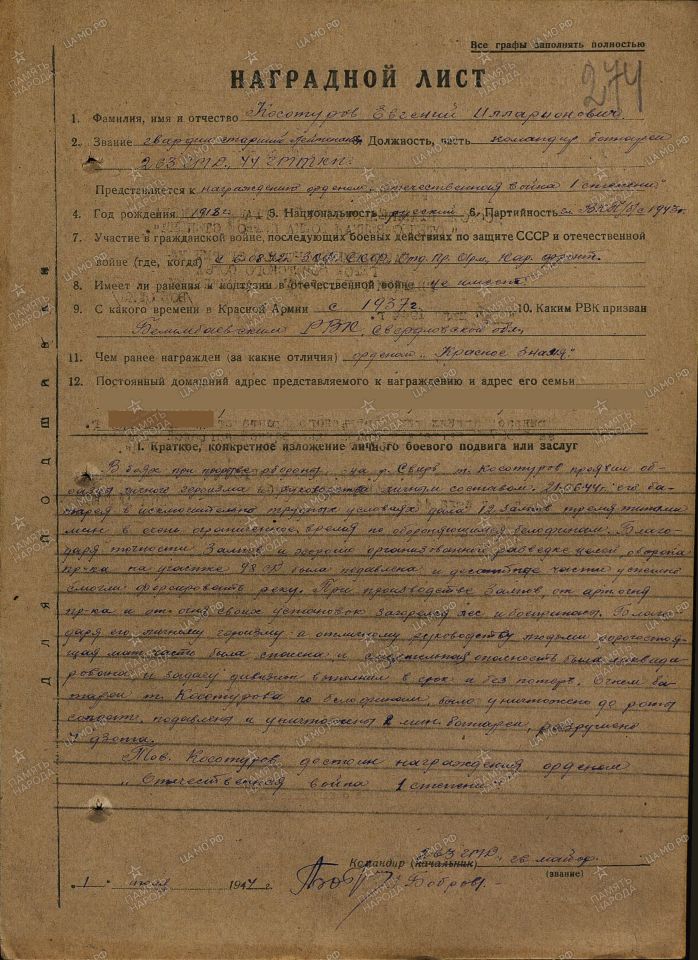 Все графы заполнять полностью
НАГРАДНОЙ ЛИСТ
274
1. Фамилия, имя и отчество Косотуров Евгений Илларионович
2. Звание гвардии старший лейтенант Должность, часть командир батареи
263 ГМД, 44 ГМП
Представляется к награждению орденом „Отечественная война 1 степени"
4. Год рождения 1918 г. 5. Национальность русский 6. Партийность ВКП(б) с 1943 г.
7. Участие в гражданской войне, последующих боевых действиях по защите СССР и отечественной
войне (где, когда) Кар. фронт.
8. Имеет ли ранения и контузии в отечественной войне не имеет
9. С какого времени в Красной Армии с 1937 г. 10. Каким РВК призван
Билимбаевским РВК, Свердловской обл.
11. Чем ранее награжден (за какие отличия) орденом „Красное Знамя"
12. Постоянный домашний адрес представляемого к награждению и адрес его семьи
I. Краткое, конкретное изложение личного боевого подвига или заслуг
В боях при прорыве обороны на р. Свирь т. Косотуров проявил об-
разцы личного героизма и руководства личным составом. 21.06.44 г. его ба-
тарея в исключительно трудных условиях дала 12 залпов тремя типами
мин в очень ограниченное время по обороняющимся белофинам. Благо-
даря точности залпов и хорошо организованной разведке целей оборона
пр-ка на участке 98 СД была подавлена и десантные части успешно
смогли форсировать реку. При производстве залпов, от арт. огня
пр-ка и от огня своих установок загорелся лес и боеприпасы. Благо-
даря его личному героизму и отличному руководству людьми дорогостоя-
щая мат. часть была спасена, и опасность была ликвиди-
рована, и задачу дивизион выполнил в срок и без потерь. Огнем ба-
тареи т. Косотурова по белофинам, было уничтожено до роты
солдат, подавлено и уничтожено 2 мин. батареи, разрушено
4 дзота.
Тов. Косотуров достоин награждения орденом
„Отечественная война 1 степени"
Командир (начальник) 263 ГМД, гв. майор
(звание)
„1" июля 1944 г. Бобров
ДЛЯ ПОДШИВКИ
ПАМЯТЬ НАРОДА
ЦАМО.РФ